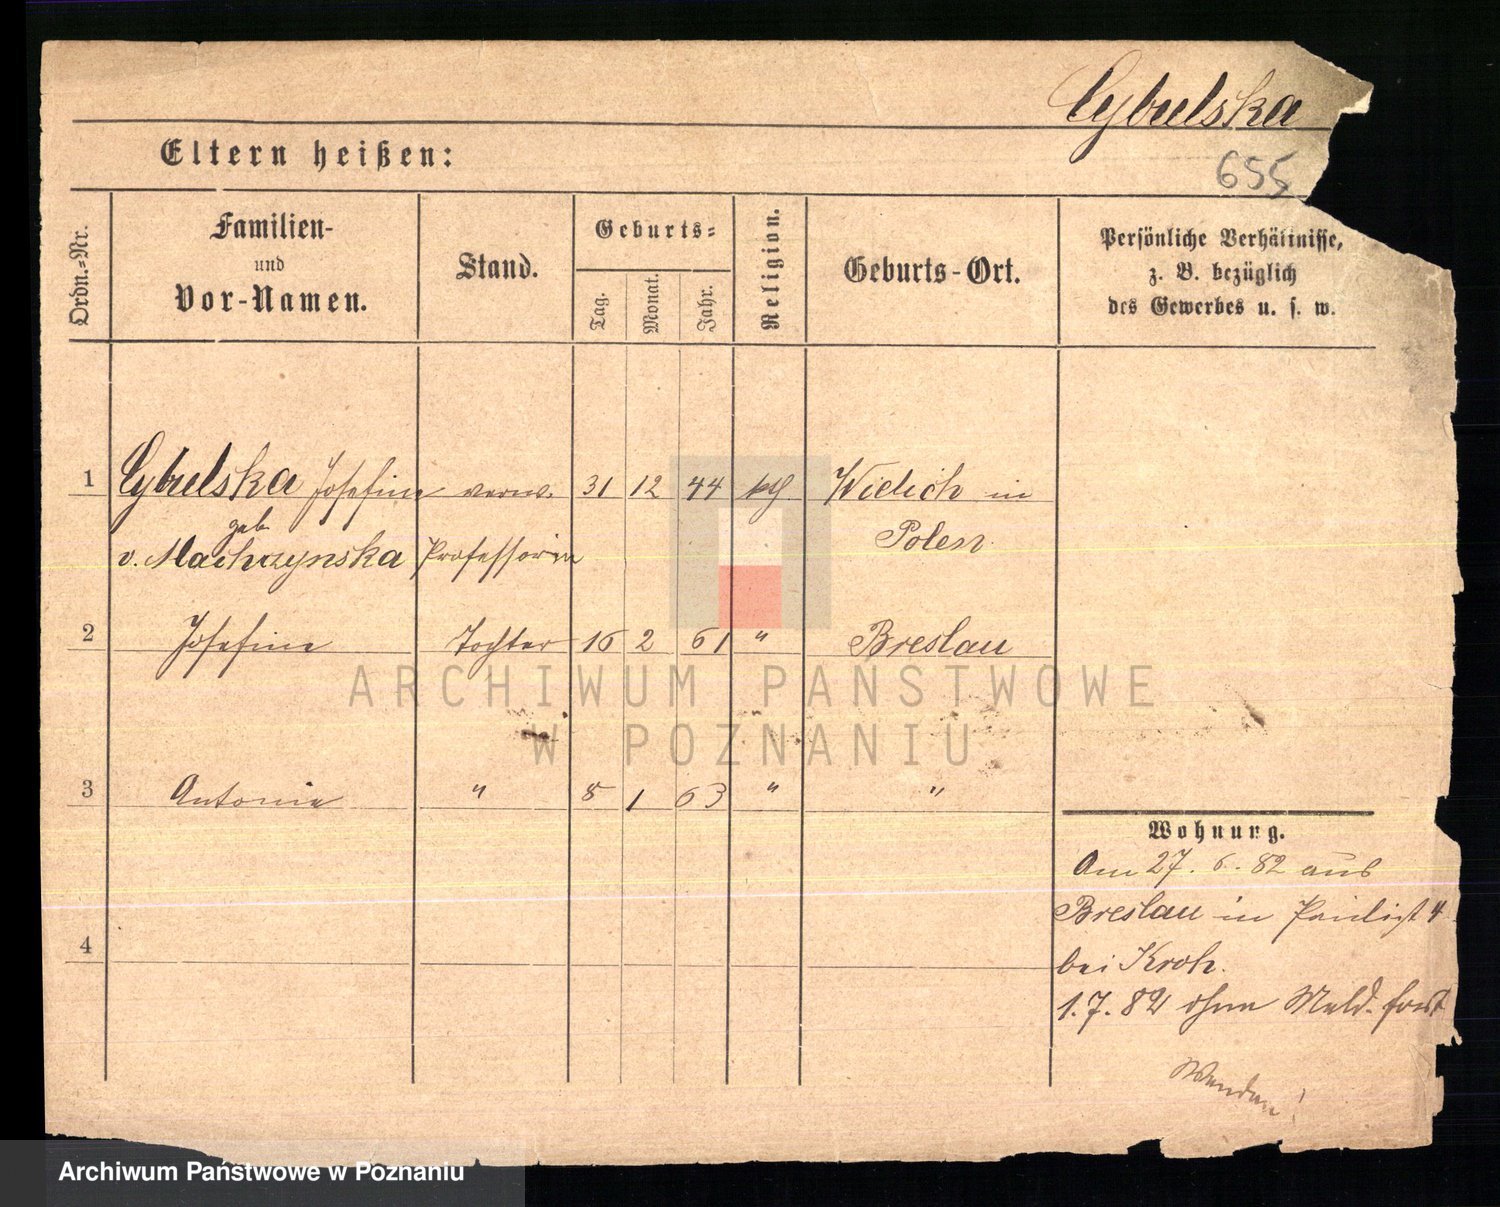 Cybulska
655
Eltern heißen:
Ordn.-Nr.
Familien-
und
Vor-Namen.
Stand.
Geburts-
Tag.
Monat.
Jahr.
Religion.
Geburts-Ort.
Persönliche Verhältnisse,
z. B. bezüglich
des Gewerbes u. s. w.
1 Cybulska Josefine verw. 31 12 44 kth. Widich in
geb
v. Machczynska Professorin Polen
2 Josefine Tochter 16 2 61 " Breslau
ARCHIWUM PAŃSTWOWE
W POZNANIU
3 Antonie " 8 1 63 " "
Wohnung.
Am 27. 6. 82 aus
Breslau in 4
bei Kroh.
1.7.82 ohne Meld. fort
Wenden!
4
Archiwum Państwowe w Poznaniu